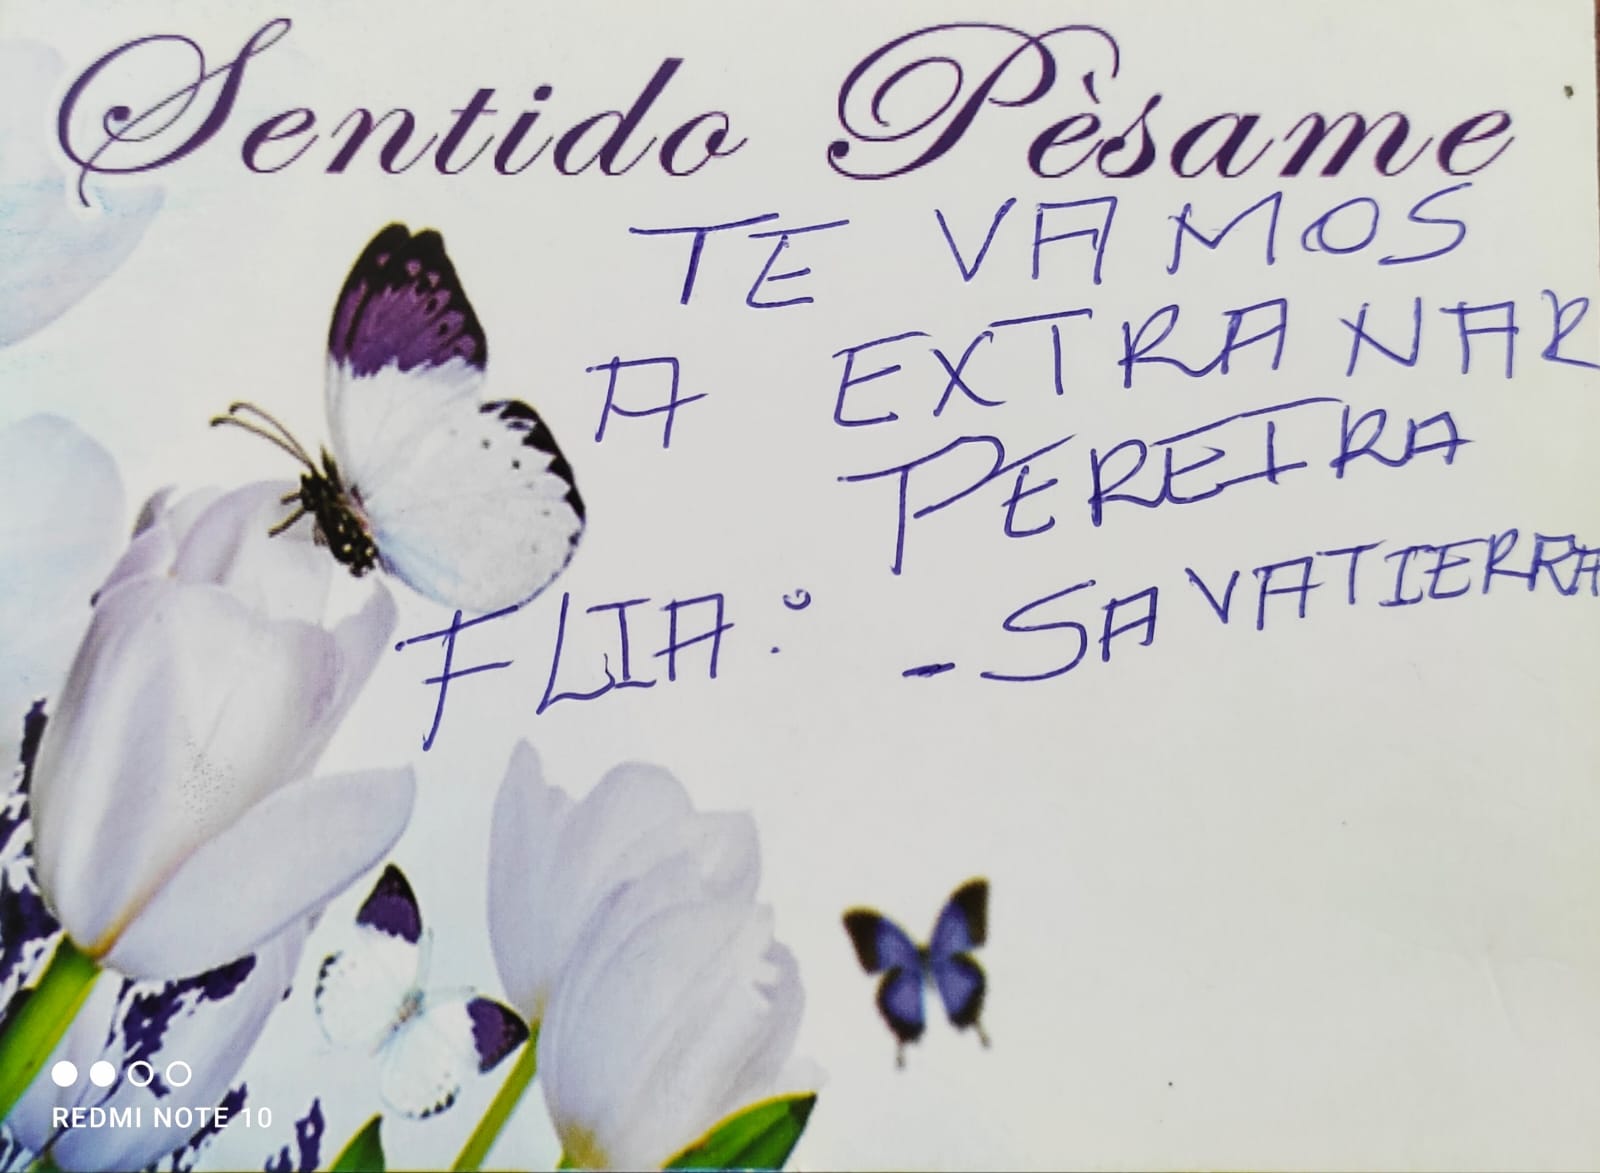 Sentido Pèsame
TE VAMOS
A EXTRANAR
PEREIRA
FLIA: - SAVATIERRA
REDMI NOTE 10